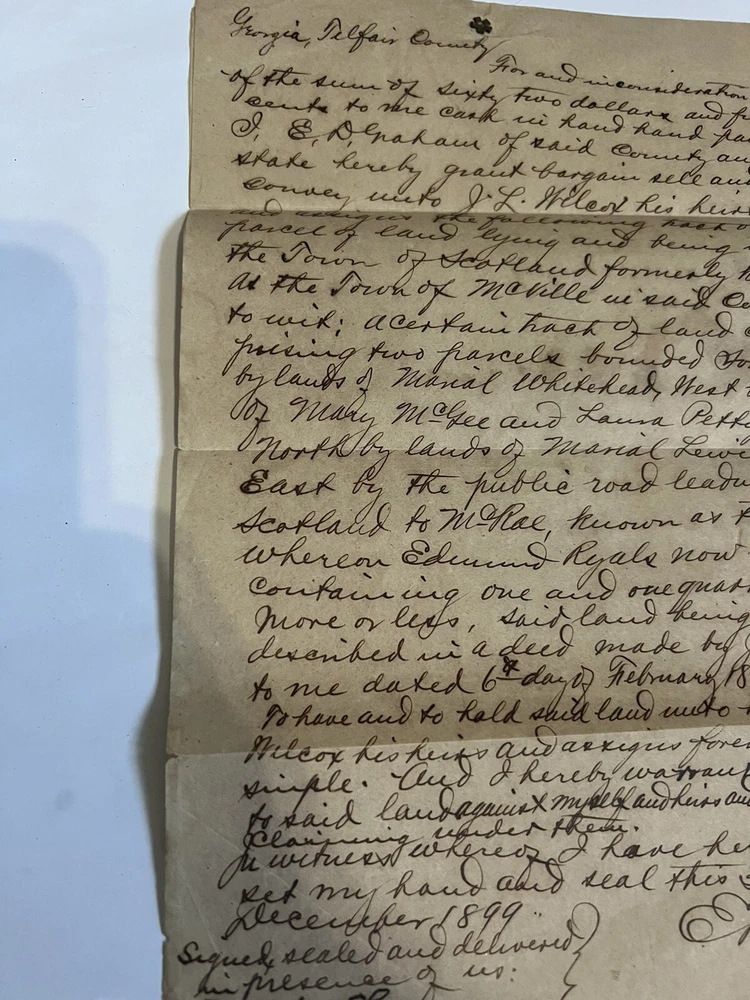 Georgia, Telfair County
For and in consideration
of the sum of sixty two dollars and
cents to me cash in hand hand
I, E, D, Graham of said County
state hereby grant bargain sell and
convey unto J. L. Wilcox his heirs
and assigns the following tract or
parcel of land lying and being
the Town of Scotland formerly
As the Town of McVille in said Co
to wit: a certain track of land
prising two parcels bounded
by lands of Marial Whitehead, West
of Mary McGee and Laura Pett
North by lands of Marial Lewi
East by the public road lead
Scotland to McRae, known as
whereon Edmund Ryals now
containing one and one quar
more or less, said land being
described in a deed made by
to me dated 6th day of February 18
To have and to hold said land unto
Wilcox his heirs and assigns fore
simple. And I hereby warrant
to said land against myself and heirs and
claiming under them.
In witness whereof I have he
set my hand and seal this
December 1899.
Signed, sealed and delivered
in presence of us: